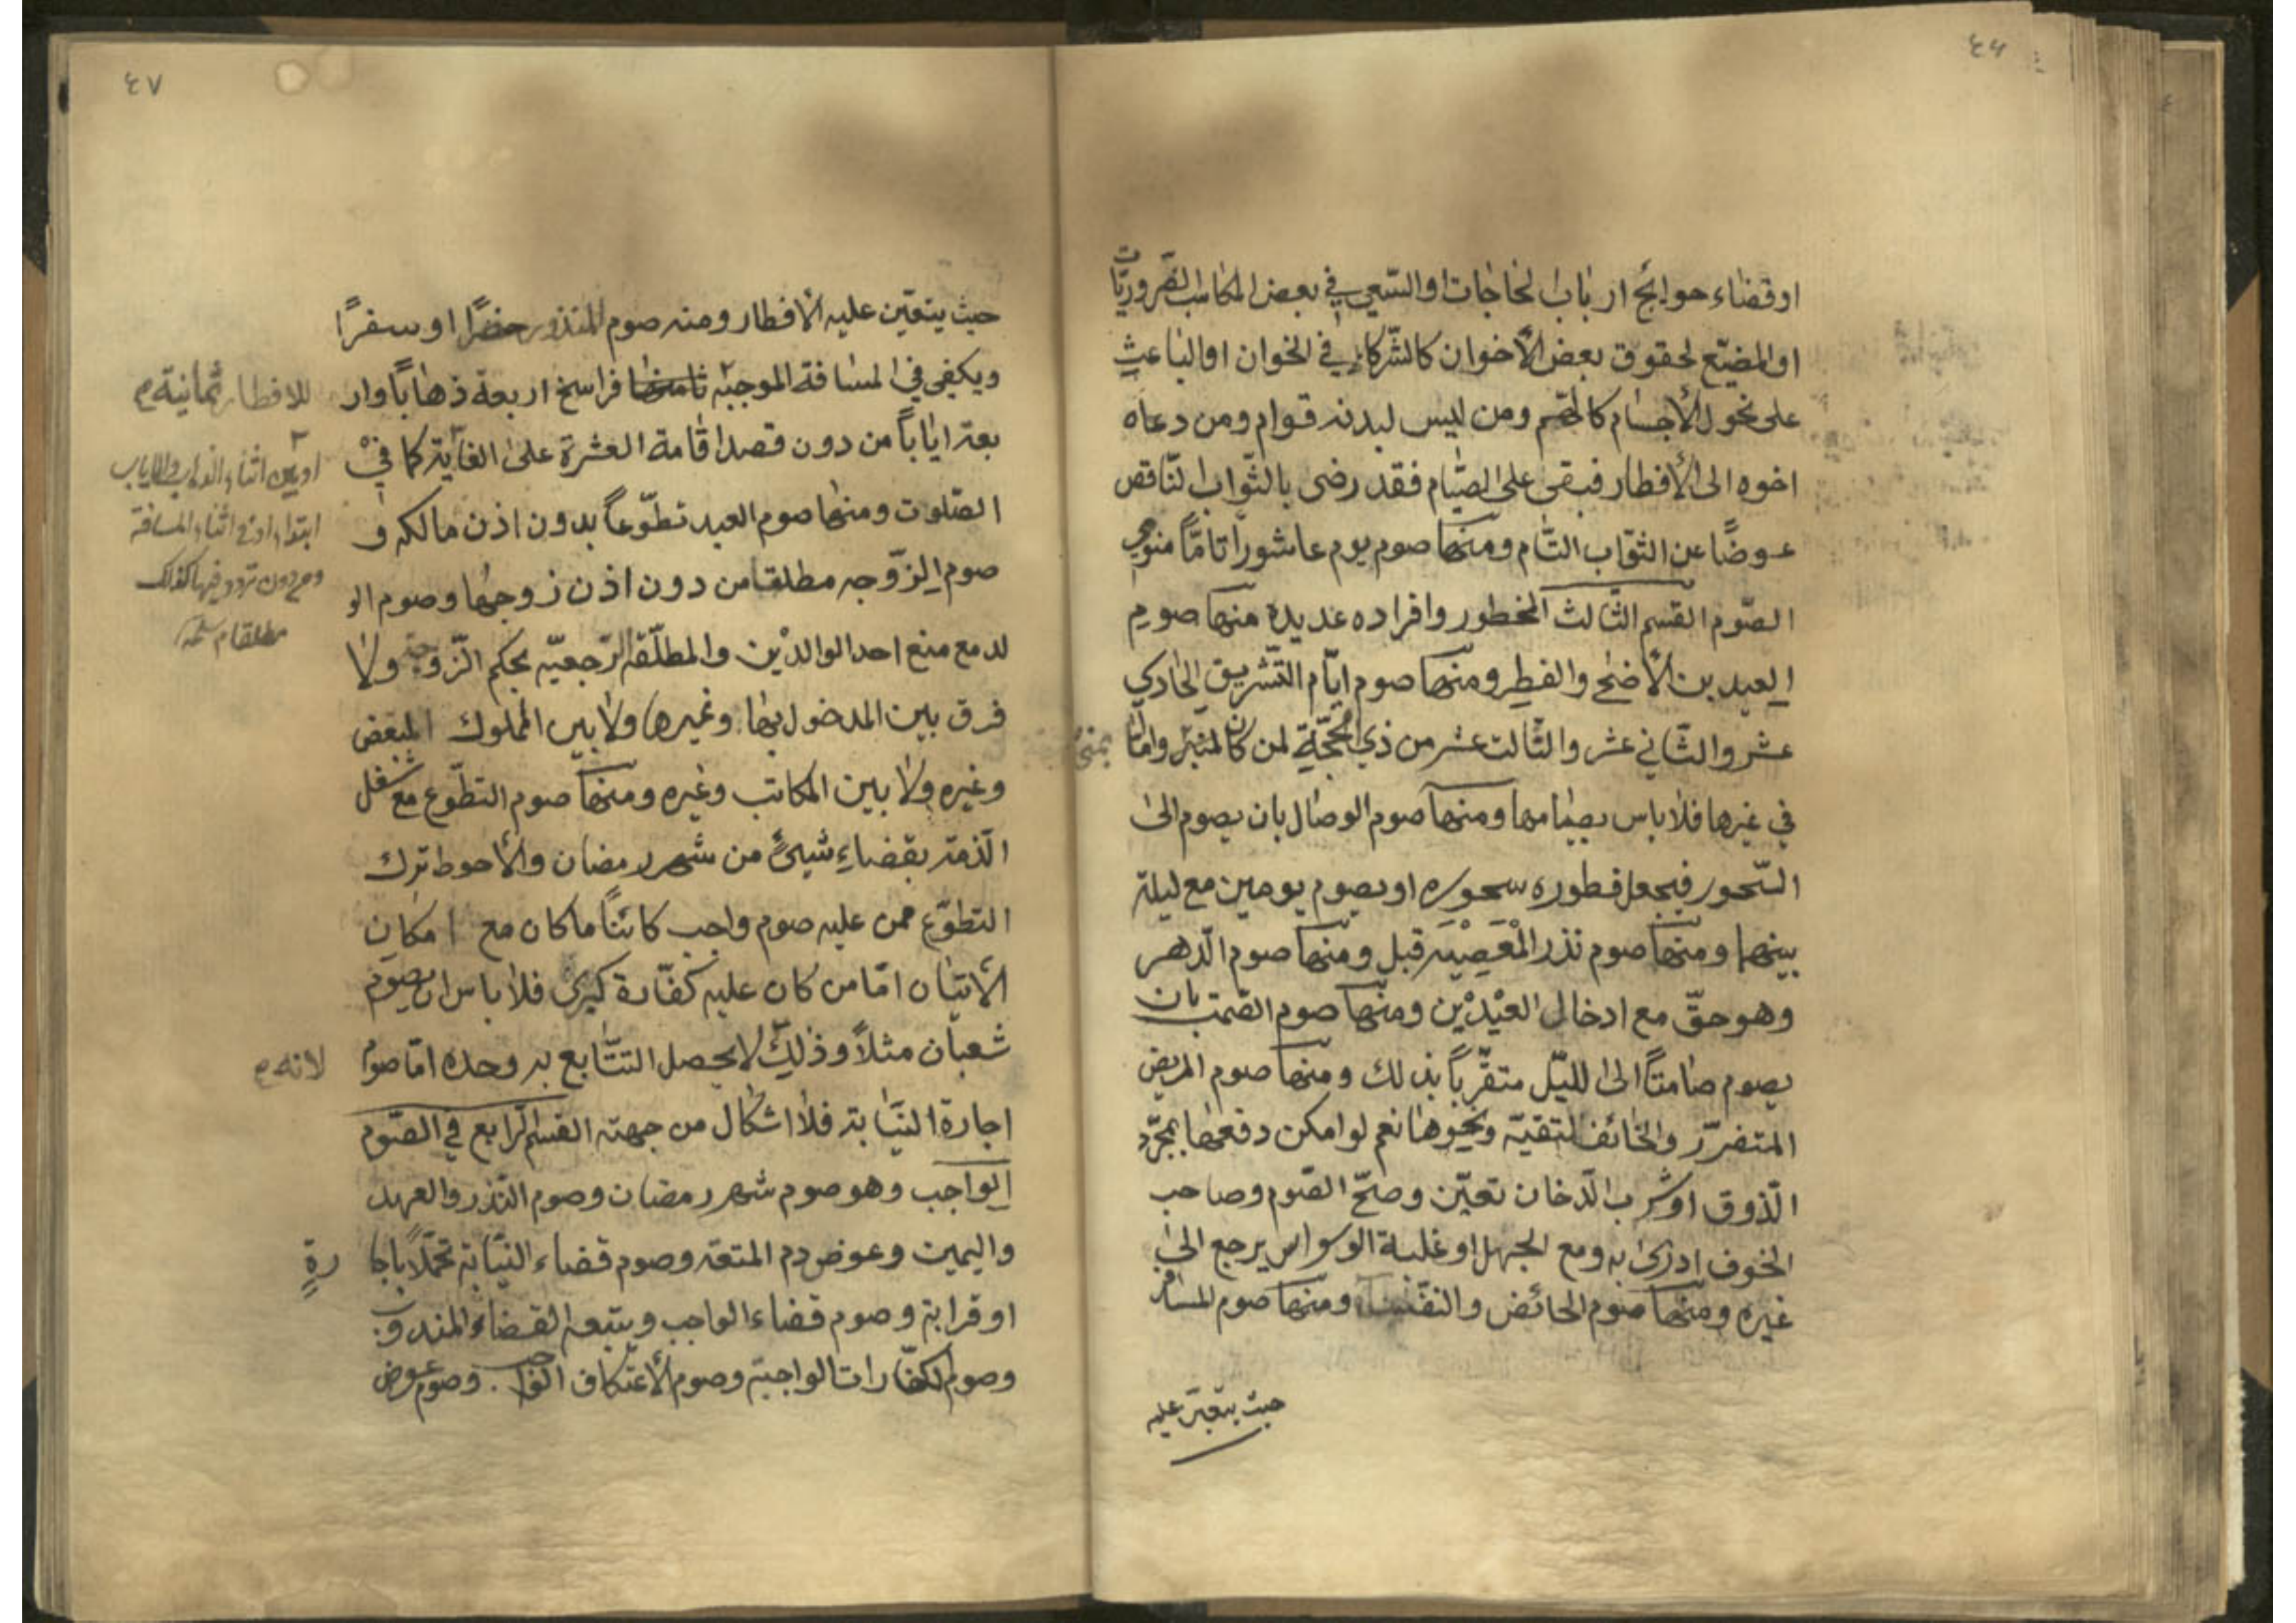 ٤٦
اوقضاء حوايج ارباب الحاجات او السّعي في بعض المكاسب الضّروريّات
او المضيّع لحقوق بعض الأخوان كالشّركاء في الخوان او الباعث
على نحول الأجسام ومن ليس لبدنه قوام ومن دعاه
اخوه الى الأفطار فبقى على الصّيام فقد رضى بالثّواب النّاقص
عوضًا عن الثّواب التّام ومنها صوم يوم عاشورا تامًّا منوي
الصّوم القسم الثّالث المحظور وافراده عديدة منها صوم
العيدين الأضحى والفطر ومنها صوم ايّام التّشريق الحادي
عشر والثّاني عشر والثّالث عشر من ذي الحجّة لمن كان بمنى وامّا
في غيرها فلا باس بصيامها ومنها صوم الوصال بان يصوم الى
السّحور فيجعل فطوره سحوره او يصوم يومين مع ليلة
بينهما ومنها صوم نذر المعصية قيل ومنها صوم الدّهر
وهو حقّ مع ادخال العيدين ومنها صوم الصّمت بان
يصوم صامتًا الى اللّيل متقرّبًا بذلك ومنها صوم المريض
المتضرّر والخائف لتقيّة ونحوها نعم لو امكن دفعها بمجرّد
الذّوق او شرب الدّخان تعيّن وصحّ الصّوم وصاحب
الخوف ادرى به ومع الجهل او غلبة الوسواس يرجع الى
غيره ومنها صوم الحائض والنّفساء ومنها صوم المسافر
حيث يتعيّن عليه
٤٧
حيث يتعيّن عليه الأفطار ومنه صوم المنذور حضرًا او سفرًا
ويكفي في المسافة الموجبة فراسخ اربعة ذهابًا وار
بعة ايابًا من دون قصد اقامة العشرة على الغاية كما في
الصّلوت ومنها صوم العبد تطوّعًا بدون اذن مالكه و
صوم الزّوجه مطلقا من دون اذن زوجها وصوم الو
لد مع منع احد الوالدين والمطلّقة الرّجعيّه بحكم الزّوجة ولا
فرق بين المدخول بها وغيرها ولا بين المملوك المبعض
وغيره ولا بين المكاتب وغيره ومنها صوم التطوّع مع شغل
الذّمّة بقضاء شيئ من شهر رمضان والأحوط ترك
التطوّع ممن عليه صوم واجب كائنًا ماكان مع امكان
الأتيان امّا من كان عليه كفّارة كبرى فلا باس ان يصوم
شعبان مثلًا وذلك لا يحصل التتابع به وحده امّا صوم
اجارة النّيابة فلا اشكال من جهته القسم الرّابع في الصّوم
الواجب وهو صوم شهر رمضان وصوم النّذر والعهد
واليمين وعوض دم المتعه وصوم قضاء النّيابة تحمّلًا باجا رةٍ
او قرابة وصوم قضاء الواجب ويتبعه القضاء المندوب
وصوم الكفّارات الواجبة وصوم الأعتكاف الواجب وصوم عوض
للافطار ثمانية
اثناء الذهاب والاياب
ابتداء اوفي اثناء المسافة
ومع دون تردد فيها كذلك
مطلقا
لانه